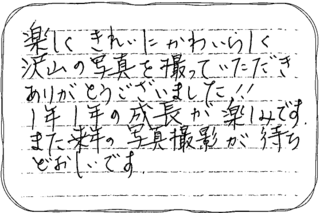 楽しく きれいに かわいらしく
沢山の写真を撮っていただき
ありがとうございました!!
1年1年の成長が楽しみです.
また来年の写真撮影が待ち
どおしいです.